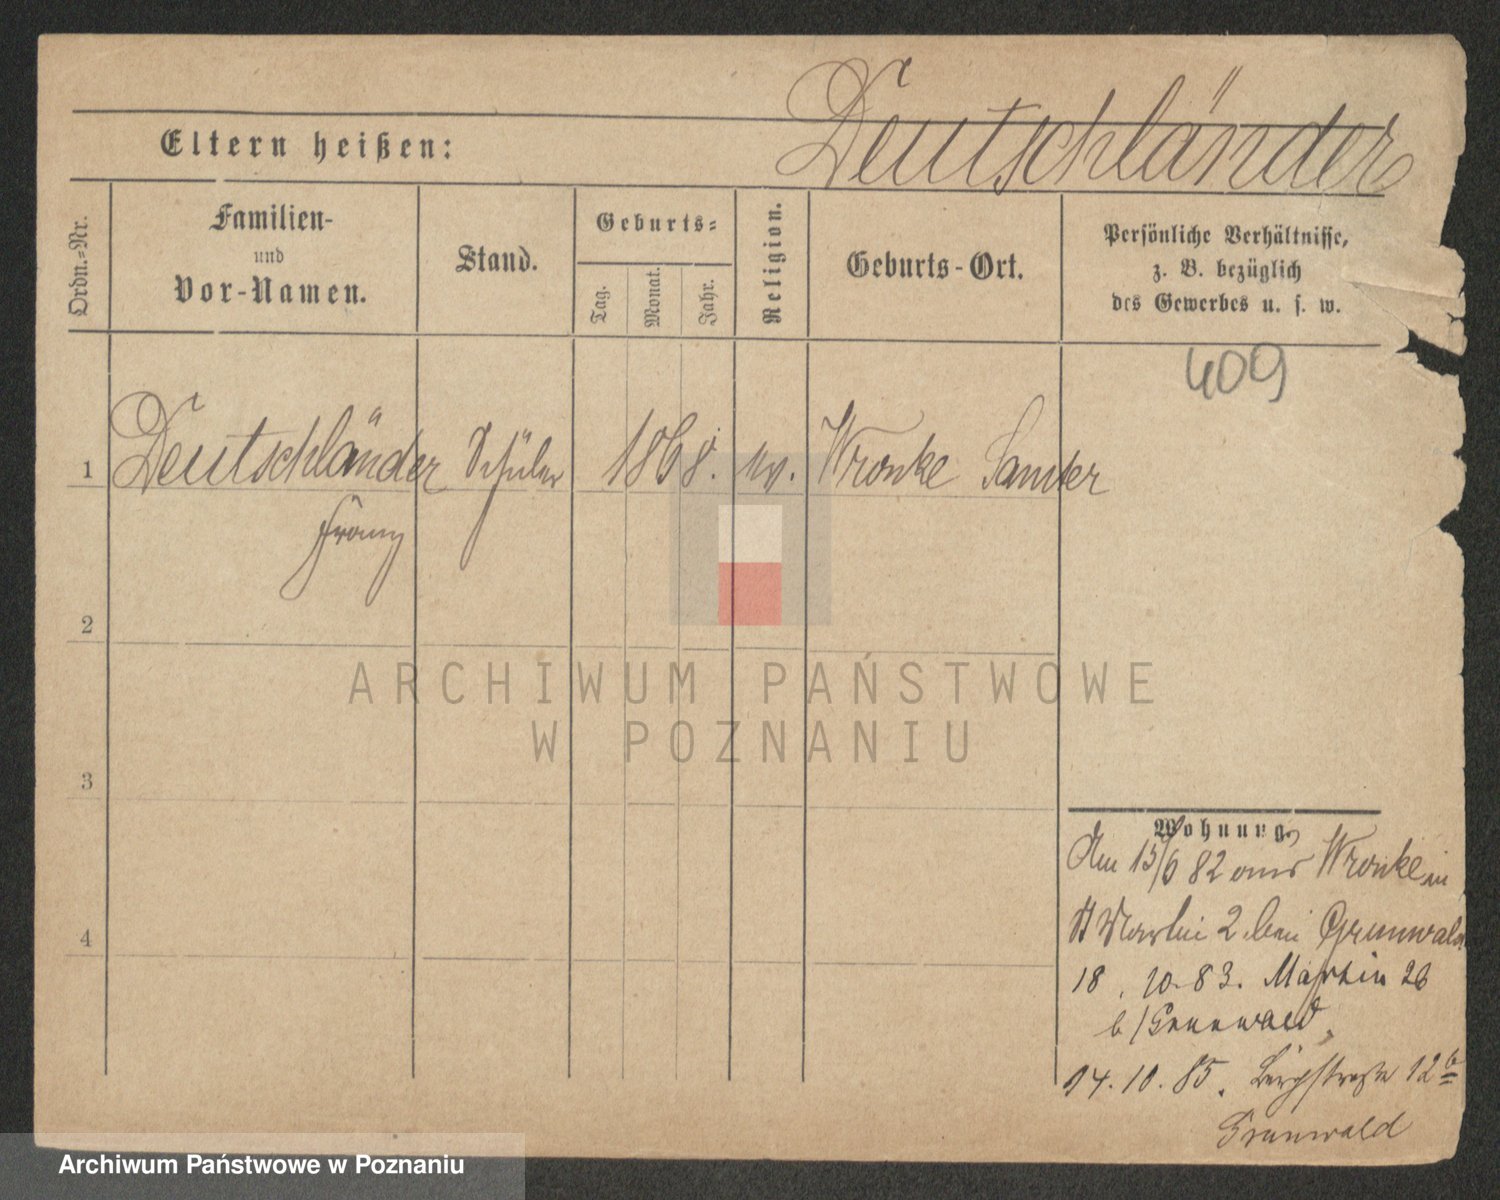 Deutschländer
Eltern heißen:
Ordn.=Nr.
Familien-
und
Vor-Namen.
Stand.
Geburts=
Tag.
Monat.
Jahr.
Religion.
Geburts-Ort.
Persönliche Verhältnisse,
z. B. bezüglich
des Gewerbes u. s. w.
409
1 Deutschländer Schüler 1868. Wronke Samter
Franz
2
3
4
Wohnung.
Am 15/6 82 aus Wronke in
St Martin 2 bei Grunwald
18. 10. 83. Martin 26
b/Grunwald.
14. 10. 85. Bergstraße 12b
Grunwald
ARCHIWUM PAŃSTWOWE
W POZNANIU
Archiwum Państwowe w Poznaniu